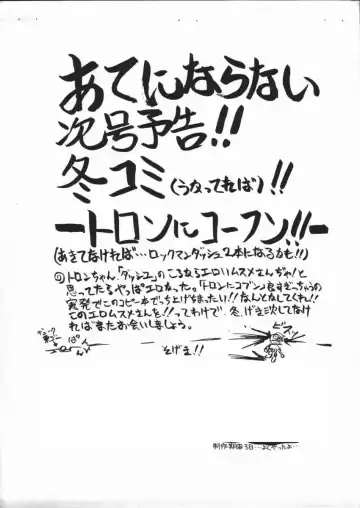 あてにならない
次号予告!!
冬コミ(うなってれば)!!
ートロンにコーフン!!ー
(あきてなければ…ロックマンダッシュ2本になるかも!!)
トロンちゃん「ダッシュ」のころからエロいムスメさんぢゃ!と
思ってたらやっぱエロなった。「トロンにコブン」良すぎっちゅうの
実発でこのコピー本でっち上げちまったい!!なんとなしてくれ!!
このエロムスメさんを!!ってわけで、冬、げき沈してなけ
ればまたお会いしましょう。
そげき!!
ビスッ
制作期間3日…よくやったよ…